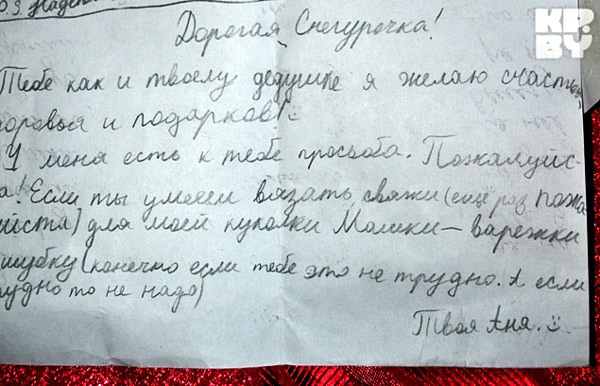 KP.BY
Дорогая Снегурочка!
Тебе как и твоему дедушке я желаю счастья,
доровья и подарков!
У меня есть к тебе просьба. Пожалуйс-
а! Если ты умееш вязать, свяжи (ещё раз пожа
йста) для моей куколки Машки – варежки
шубку (конечно если тебе это не трудно. А если
рудно то не надо)
Твоя Аня.